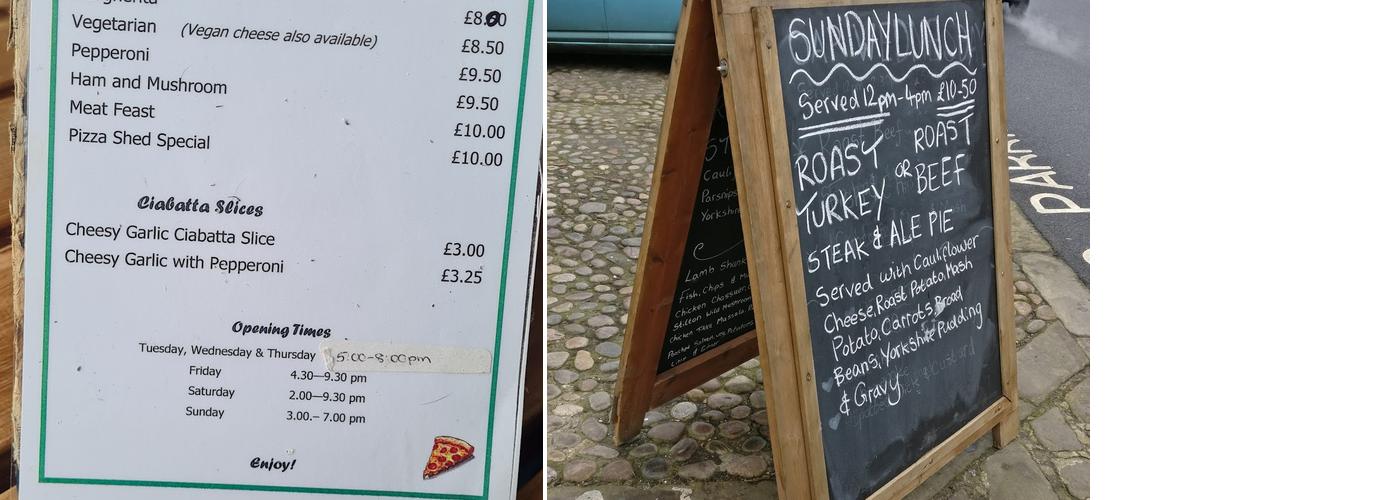 £8.00
Vegetarian (Vegan cheese also available) £8.50
Pepperoni £9.50
Ham and Mushroom £9.50
Meat Feast £10.00
Pizza Shed Special £10.00
Ciabatta Slices
Cheesy Garlic Ciabatta Slice £3.00
Cheesy Garlic with Pepperoni £3.25
Opening Times
Tuesday, Wednesday & Thursday 5:00-8:00pm
Friday 4.30—9.30 pm
Saturday 2.00—9.30 pm
Sunday 3.00.– 7.00 pm
Enjoy!
SUNDAY LUNCH
Served 12pm-4pm £10-50
ROAST TURKEY OR ROAST BEEF
STEAK & ALE PIE
Served with Cauliflower
Cheese, Roast Potato, Mash
Potato, Carrots, Broad
Beans, Yorkshire Pudding
& Gravy
Parsnips
Yorkshire
Lamb Shank
Fish, Chips &
Chicken Chasseur
Stilton Wild Mushroom
Chicken Tikka Massala